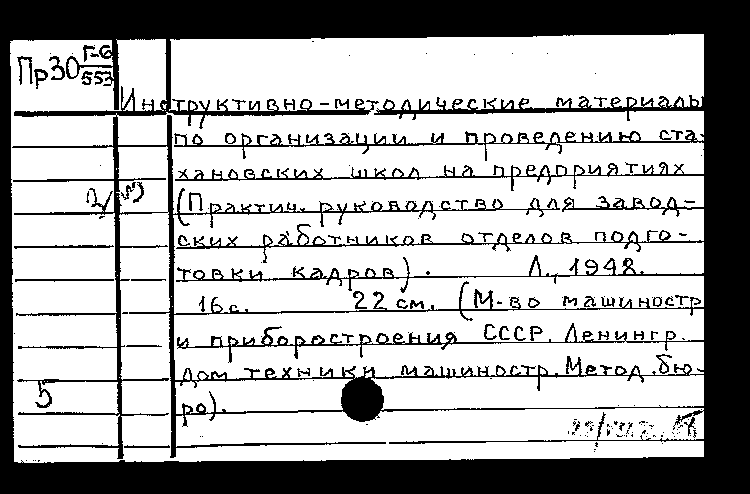 Пр30 Г-6
553
Инструктивно-методические материалы
по организации и проведению ста-
хановских школ на предприятиях
(Практич. руководство для завод-
ских работников отделов подго-
товки кадров). Л., 1948.
16 с. 22 см. (М-во машиностр.
и приборостроения СССР. Ленингр.
дом техники машиностр. Метод. бю-
5
ро).